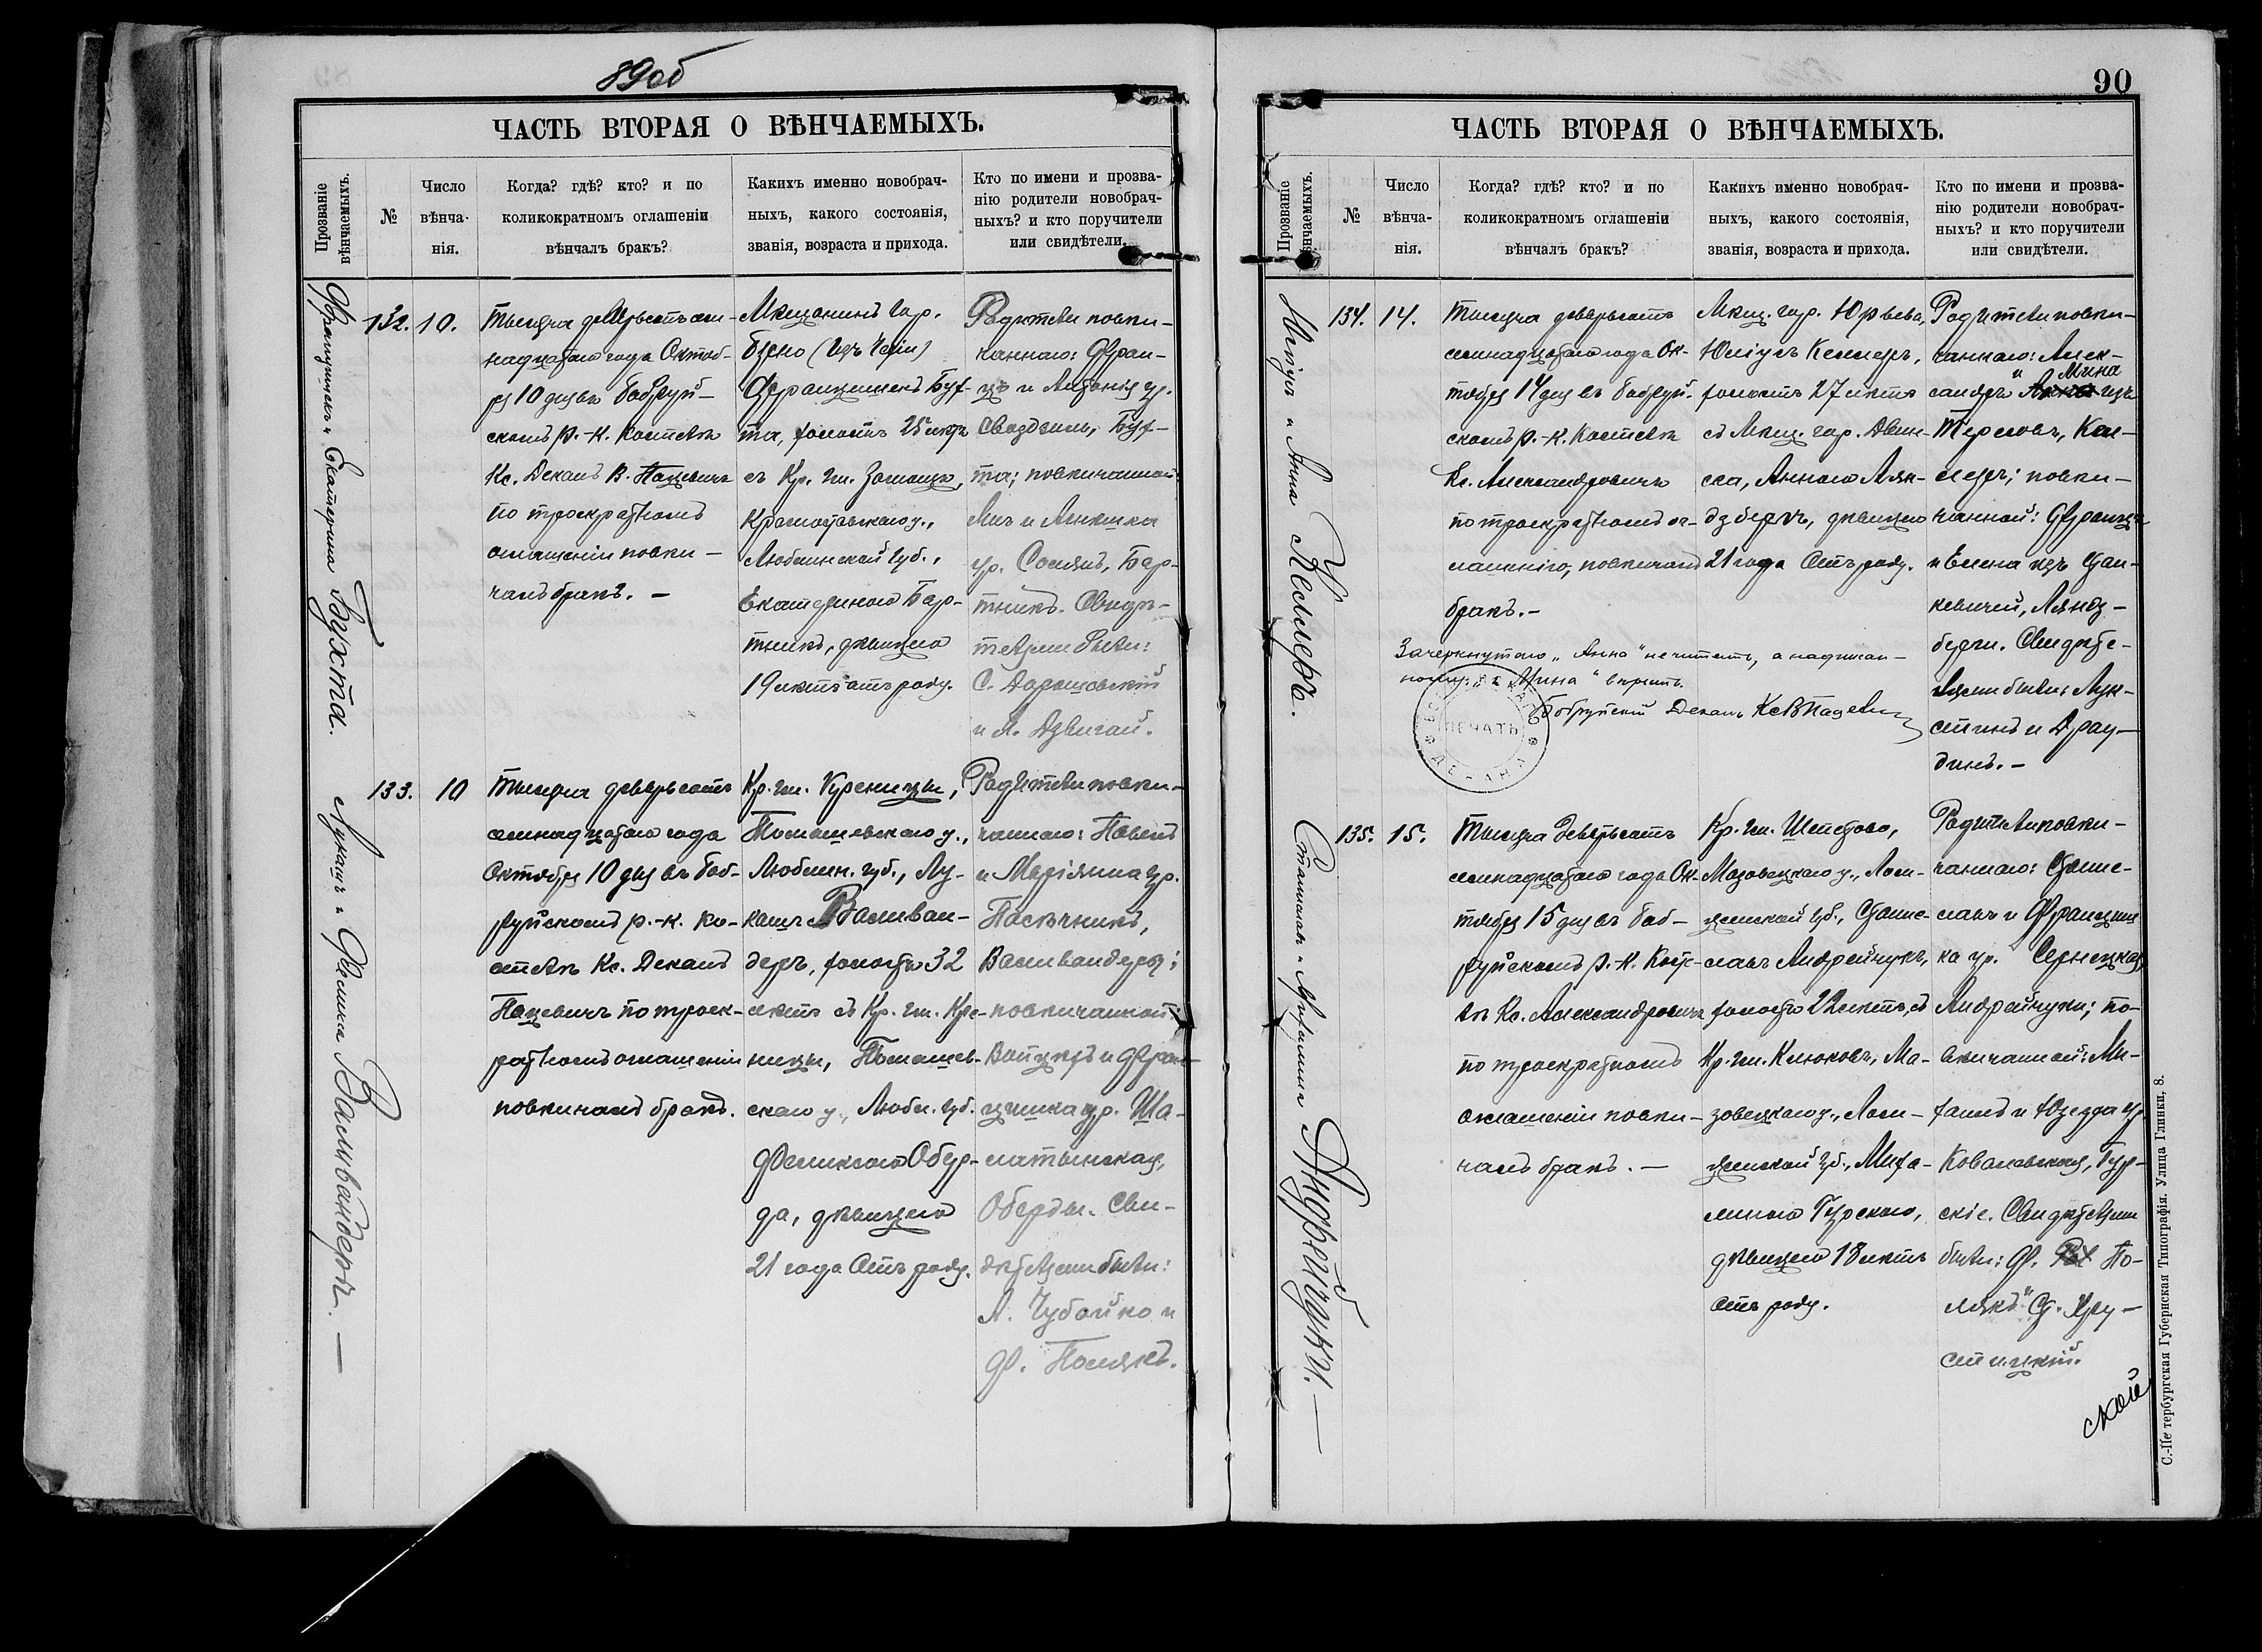 89об
ЧАСТЬ ВТОРАЯ О ВѢНЧАЕМЫХЪ.
Прозваніе вѣнчаемыхъ.
№
Число вѣнча-нія.
Когда? гдѣ? кто? и по
коликократномъ оглашеніи
вѣнчалъ бракъ?
Каихъ именно новобрач-
ныхъ, какого состоянія,
званія, возраста и прихода.
Кто по имени и прозва-
нію родители новобрач-
ныхъ? и кто поручители
или свидѣтели.
Францишекъ и Екатерина Бухта.
132.
10.
Тысяча девятьсотъ сем-
надцатаго года Октяб-
ря 10 дня въ Бобруй-
скомъ р.-к. костелѣ
Кс. Деканъ В. Пацевичъ
по троекратномъ
оглашеніи повѣн-
чалъ бракъ. —
Мѣщанинъ гор.
(изъ Чехіи)
Францишекъ Бух-
та, холостъ 25 лѣтъ
съ Кр. гм. Замосцъ,
Красноставскаго у.,
Люблинской губ.,
Екатериною Бар-
тникъ, дѣвицею
19 лѣтъ отъ роду.
Родители повѣн-
чаннаго: Фран-
цъ и Антонія ур.
Бух-
та; повѣнчанной:
ур. Бар-
тникъ. Свидѣ-
телями были:
С. Дорошовскій
и А. Дзвигай.
Лукашъ и Фелика Вальвандеръ. —
133.
10
Тысяча девятьсотъ
семнадцатаго года
Октября 10 дня въ Боб-
руйскомъ р.-к. ко-
стелѣ Кс. Деканъ
Пацевичъ по троек-
ратномъ оглашеніи
повѣнчалъ бракъ.
Кр. гм. Креницы,
Томашевскаго у.,
Люблин. губ., Лу-
кашъ Вальван-
деръ, холостъ 32
лѣтъ съ Кр. гм. Кре-
ницы, Томашев-
скаго у., Любл. губ.
Обер-
да, дѣвицею
21 года отъ роду.
Родители повѣн-
чаннаго: Павелъ
и Маріянна ур.
Пасѣчникъ,
Вальвандеры;
повѣнчанной:
Войцехъ и Фран-
цишка ур. Ша-
латынская,
Оберды. Сви-
дѣтелями были:
А. Чубайко и
Ф. Полякъ.
90
ЧАСТЬ ВТОРАЯ О ВѢНЧАЕМЫХЪ.
Прозваніе вѣнчаемыхъ.
№
Число вѣнча-нія.
Когда? гдѣ? кто? и по
коликократномъ оглашеніи
вѣнчалъ бракъ?
Какихъ именно новобрач-
ныхъ, какого состоянія,
званія, возраста и прихода.
Кто по имени и прозва-
нію родители новобрач-
ныхъ? и кто поручители
или свидѣтели.
Юліусъ и Анна Келлеръ.
134.
14.
Тысяча девятьсотъ
семнадцатаго года Ок-
тября 14 дня въ Бобруй-
скомъ р.-к. костелѣ
Кс. Александровичъ
по троекратномъ ог-
лашеніи, повѣнчалъ
бракъ. —
Мѣщ. гор. Юрьева,
Юліусъ Келлеръ,
холостъ 27 лѣтъ
съ Мѣщ. гор. Двин-
ска, Анною Лян-
дзбергъ, дѣвицею
21 года отъ роду.
Родители повѣн-
чаннаго: Алек-
сандръ и Мина изъ
Кел-
леръ; повѣн-
чанной: Францъ
и Елена изъ Стан-
кевичей, Ляндз-
берги. Свидѣте-
лями были: Лук-
стинъ и Драу-
динь. —
Зачеркнутаго „Анна“ не читать, а надписан-
ному „и Мина“ вѣрить.
Бобруйскій Деканъ Кс В Пацевичъ
ПЕЧАТЬ
ДЕКАНА
Станиславъ и Михалина Андрейчуки. —
135.
15.
Тысяча девятьсотъ
семнадцатаго года Ок-
тября 15 дня въ Боб-
руйскомъ р.-к. косте-
лѣ Кс. Александровичъ
по троекратномъ
оглашеніи повѣн-
чалъ бракъ. —
Кр. гм. Шепетово,
Мазовецкаго у., Лом-
жинской губ., Станис-
лавъ Андрейчукъ,
холостъ 22 лѣтъ, съ
Кр. гм. Клюково, Ма-
зовецкаго у., Лом-
жинской губ., Миха-
линою Гурскою,
дѣвицею 18 лѣтъ
отъ роду.
Родители повѣн-
чаннаго: Станис-
лавъ и Францишка
ур. Сернецкая,
Андрейчуки; по-
вѣнчанной: Ми-
халъ и Юзефа ур.
Ковалевская, Гур-
скіе. Свидѣтелями
были: Ф. По-
лякъ и С. Хру-
стицкій.
ской
С.-Петербургская Губернская Типографія. Улица Глинки, 8.